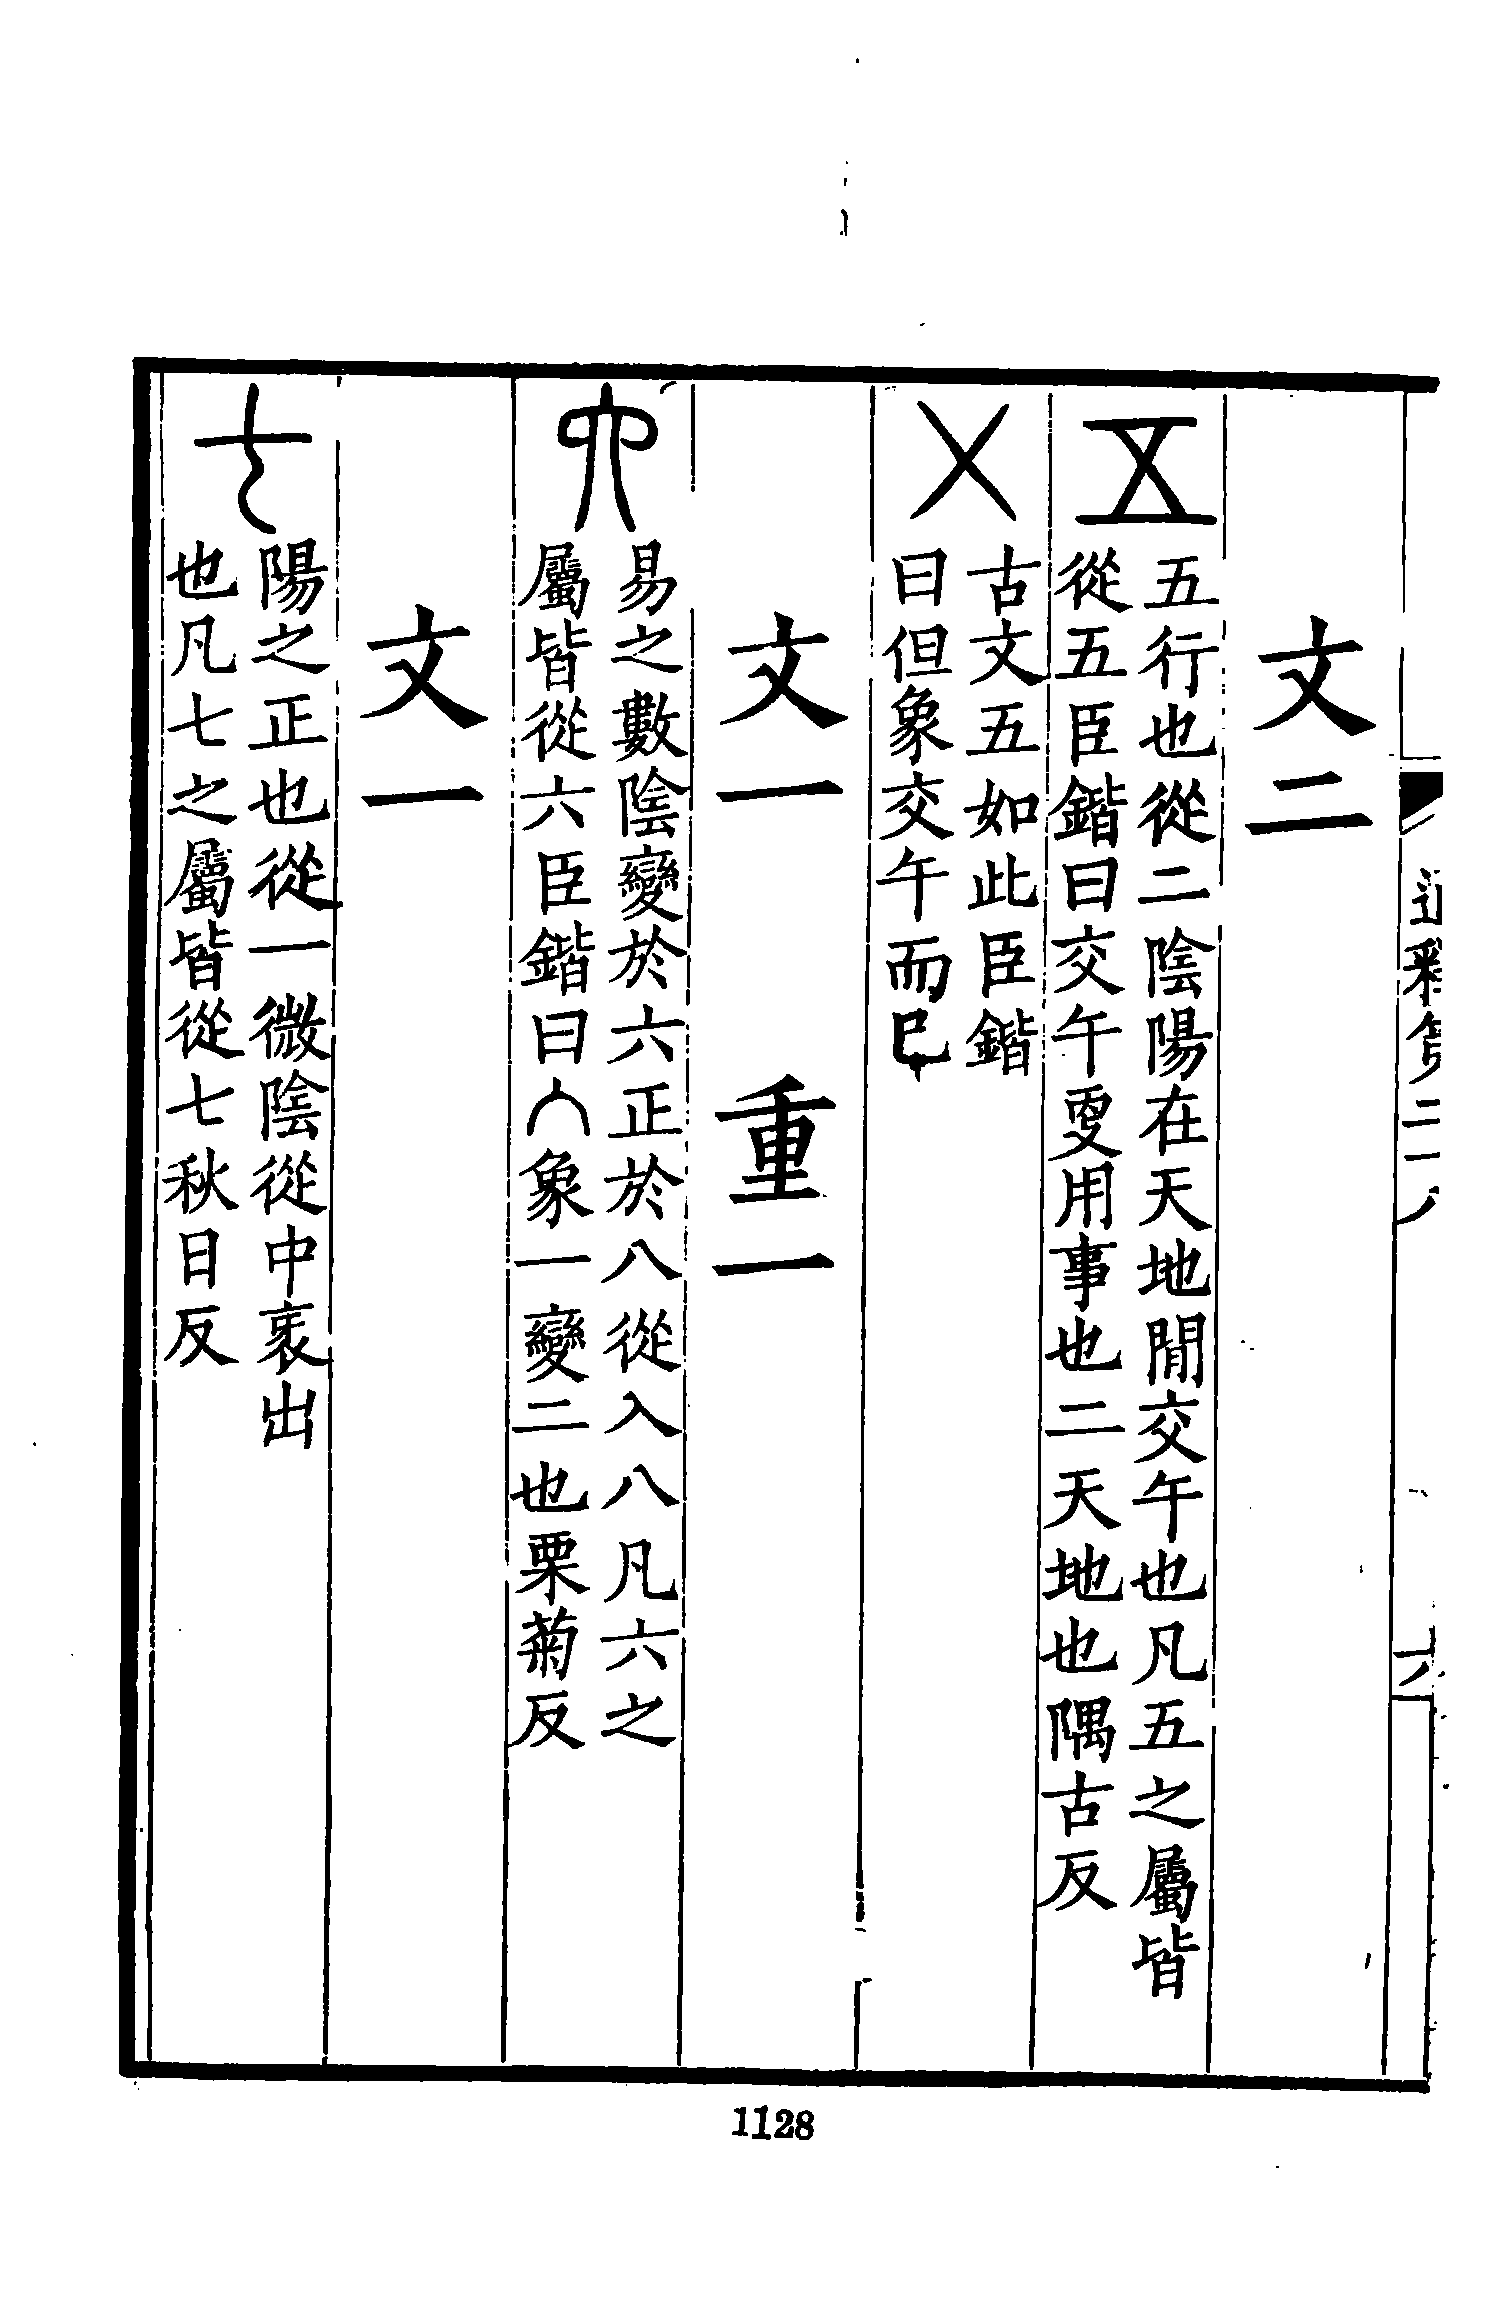 通釋弟二十八
六
文二
五行也從二陰陽在天地閒交午也凡五之屬皆
從五臣鍇曰交午更用事也二天地也隅古反
㐅
古文五如此臣鍇
曰但象交午而已
文一 重一
易之數陰變於六正於八從入八凡六之
屬皆從六臣鍇曰入象一變二也栗菊反
文一
陽之正也從一微陰從中衺出
也凡七之屬皆從七秋日反
1128